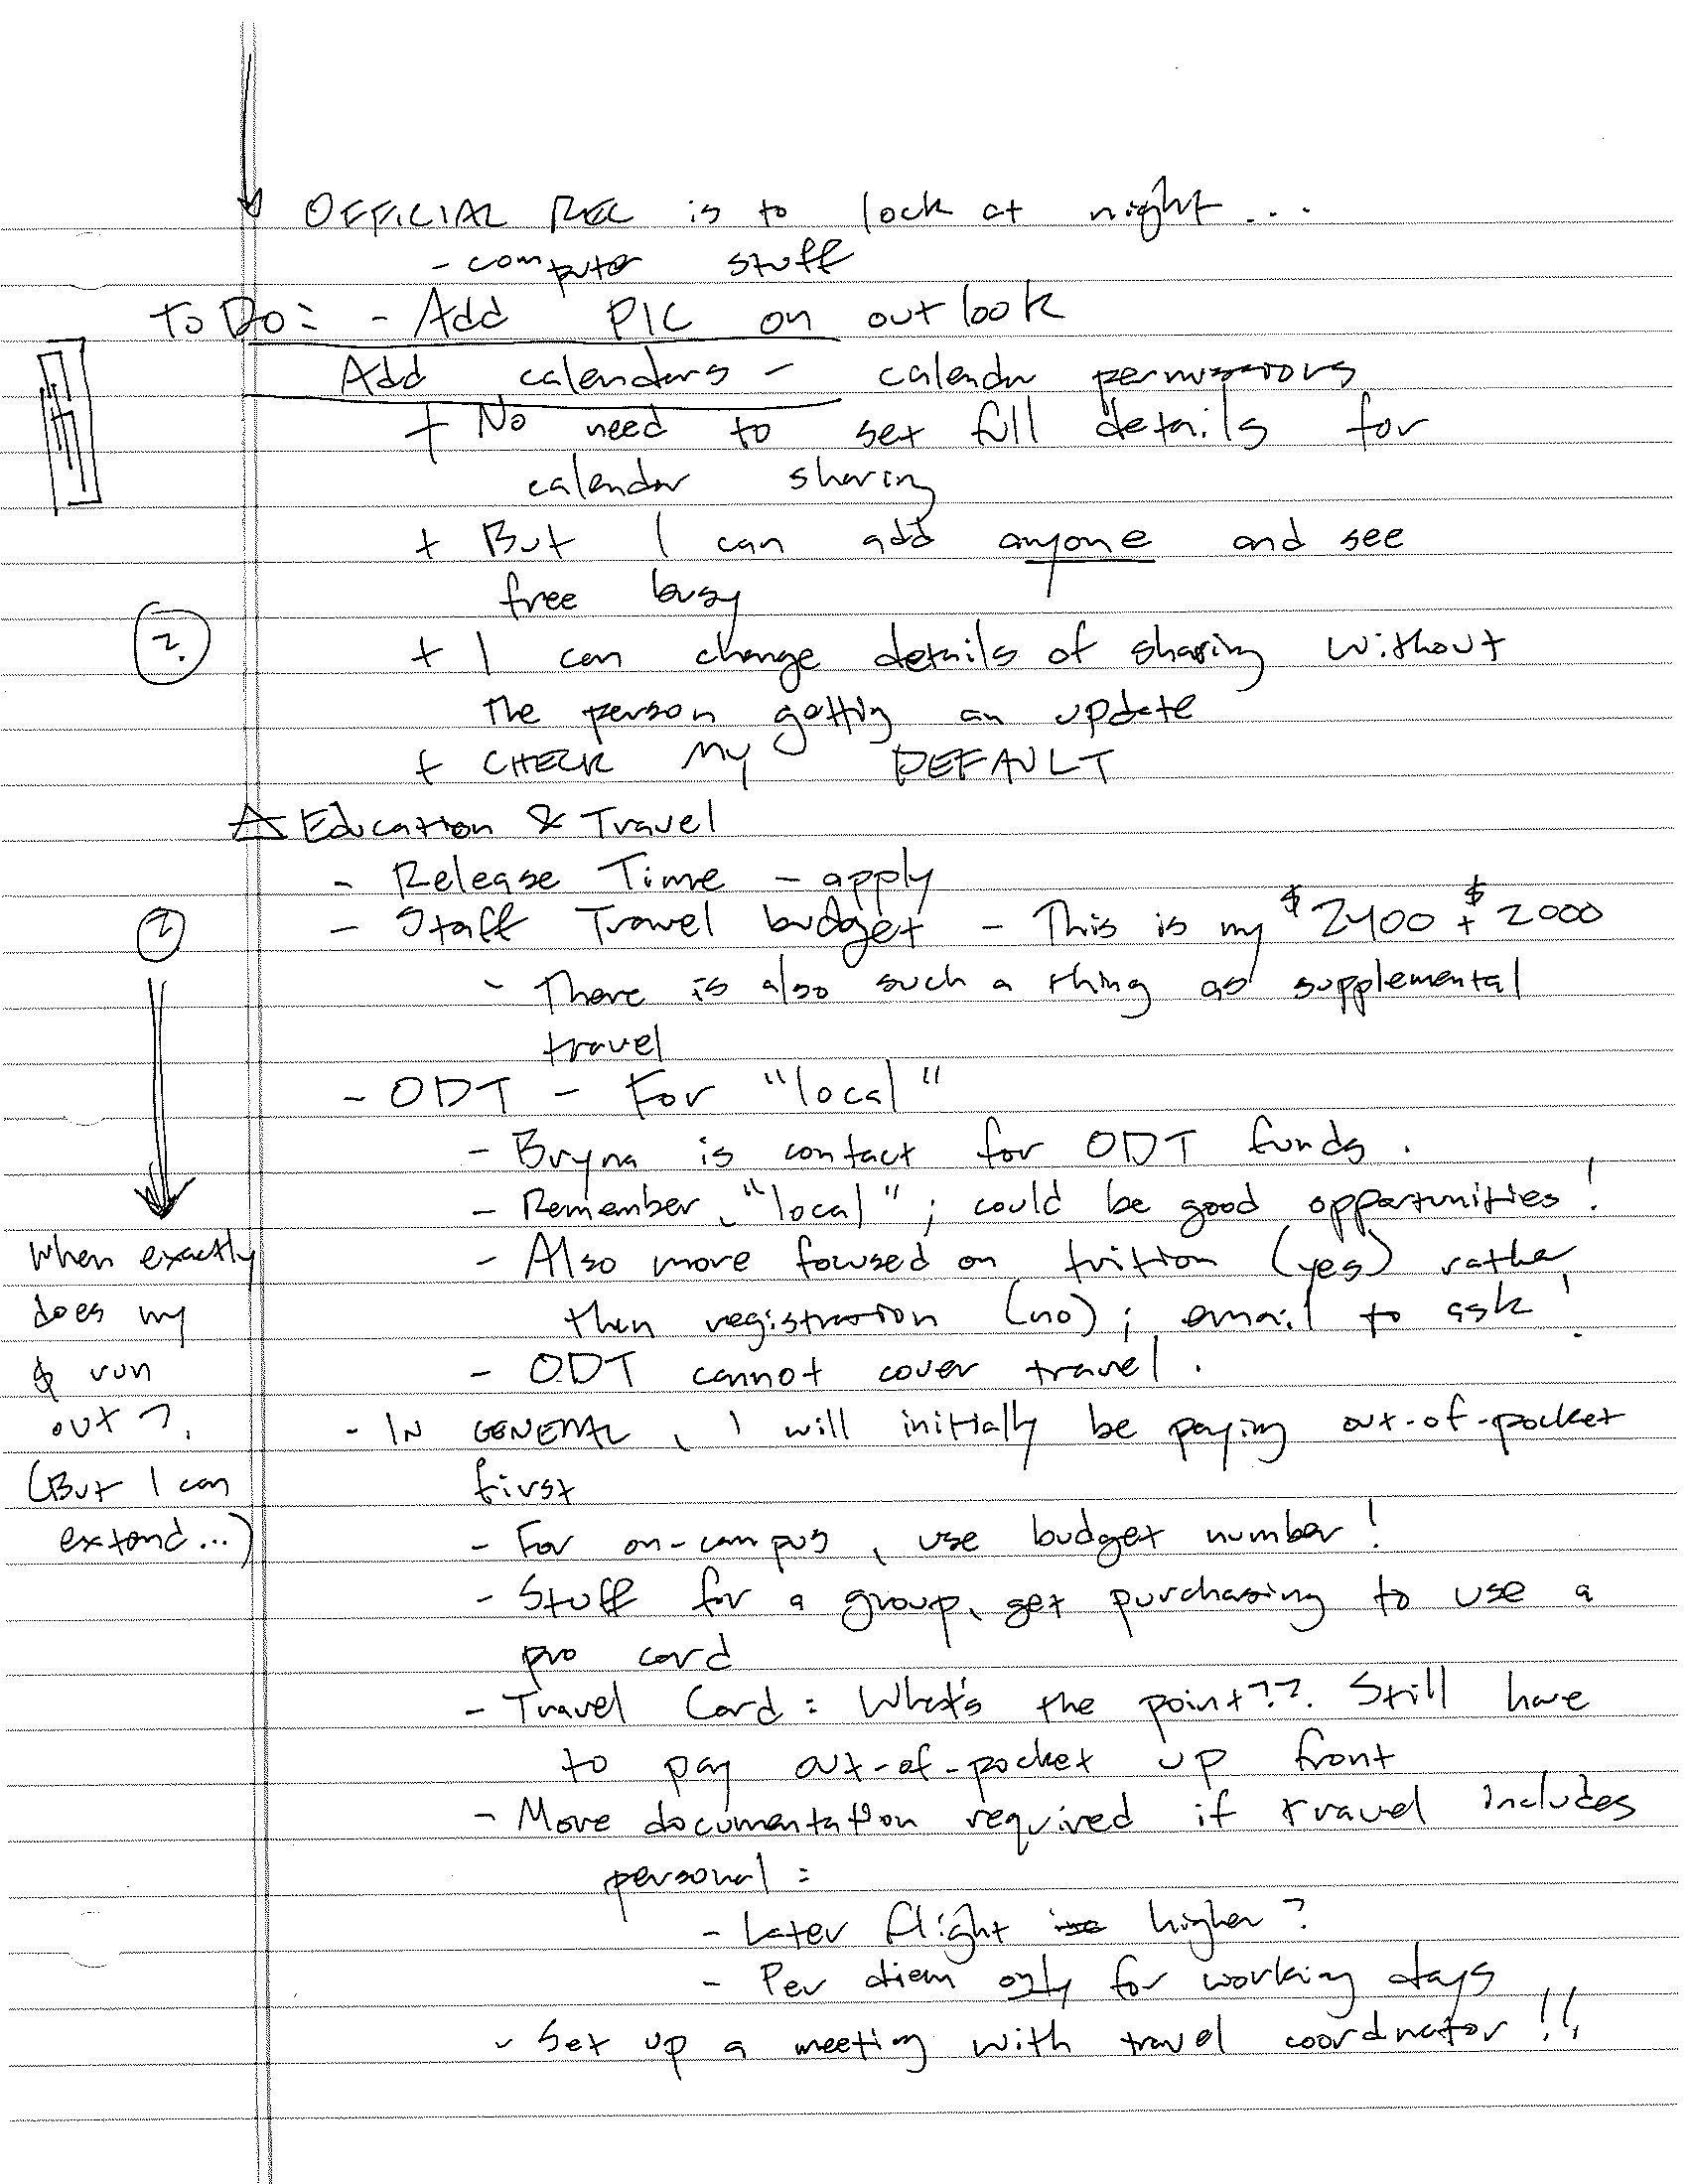 OFFICIAL REC is to lock at night...
- computer stuff
To Do: - Add PIC on outlook
Add calendars - calendar permissions
+ No need to set full details for
calendar sharing
+ But I can add anyone and see
free busy
?
+ I can change details of sharing without
the person getting an update
+ CHECK MY DEFAULT
Education & Travel
- Release Time - apply
?
- Staff Travel budget - This is my $2400 + $2000
- There is also such a thing as supplemental
travel
- ODT - For "local"
- Bryna is contact for ODT funds.
- Remember, "local"; could be good opportunities!
- Also more focused on tuition (yes) rather
than registration (no); email to ask!
- ODT cannot cover travel.
When exactly
does my
$ run
out?
(But I can
extend...)
- IN GENERAL, I will initially be paying out-of-pocket
first
- For on-campus, use budget number!
- Stuff for a group, get purchasing to use a
pro card
- Travel Card: What's the point??. Still have
to pay out-of-pocket up front
- More documentation required if travel includes
personal:
- Later flight higher?
- Per diem only for working days
- Set up a meeting with travel coordinator!!!